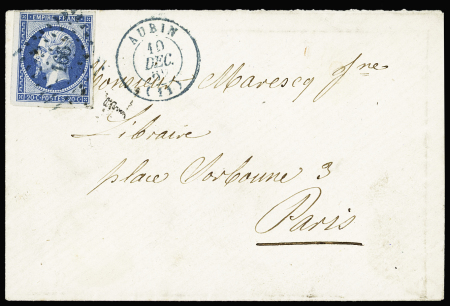 EMPIRE FRANC
20c POSTES 20c
AUBIN
10
DEC.
(11)
Monsieur Marescq Jne
Libraire
place Sorbonne 3
Paris